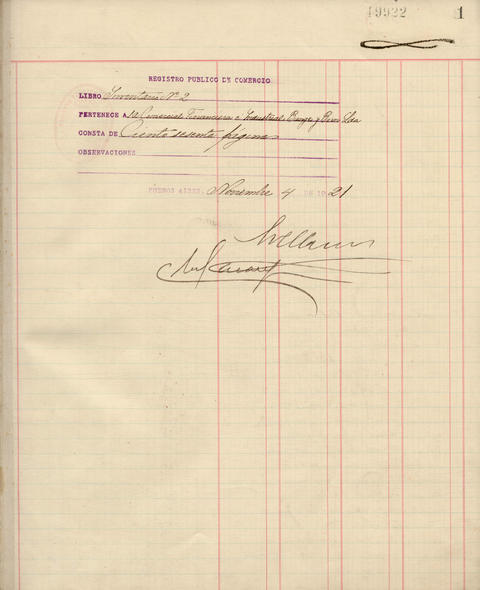 19922 1
REGISTRO PUBLICO DE COMERCIO
LIBRO Inventario Nº 2
PERTENECE A Sª Comercial Financiera e Industrial Bunge y Born Lda
CONSTA DE Ciento sesenta páginas
OBSERVACIONES
BUENOS AIRES, Noviembre 4 DE 1921